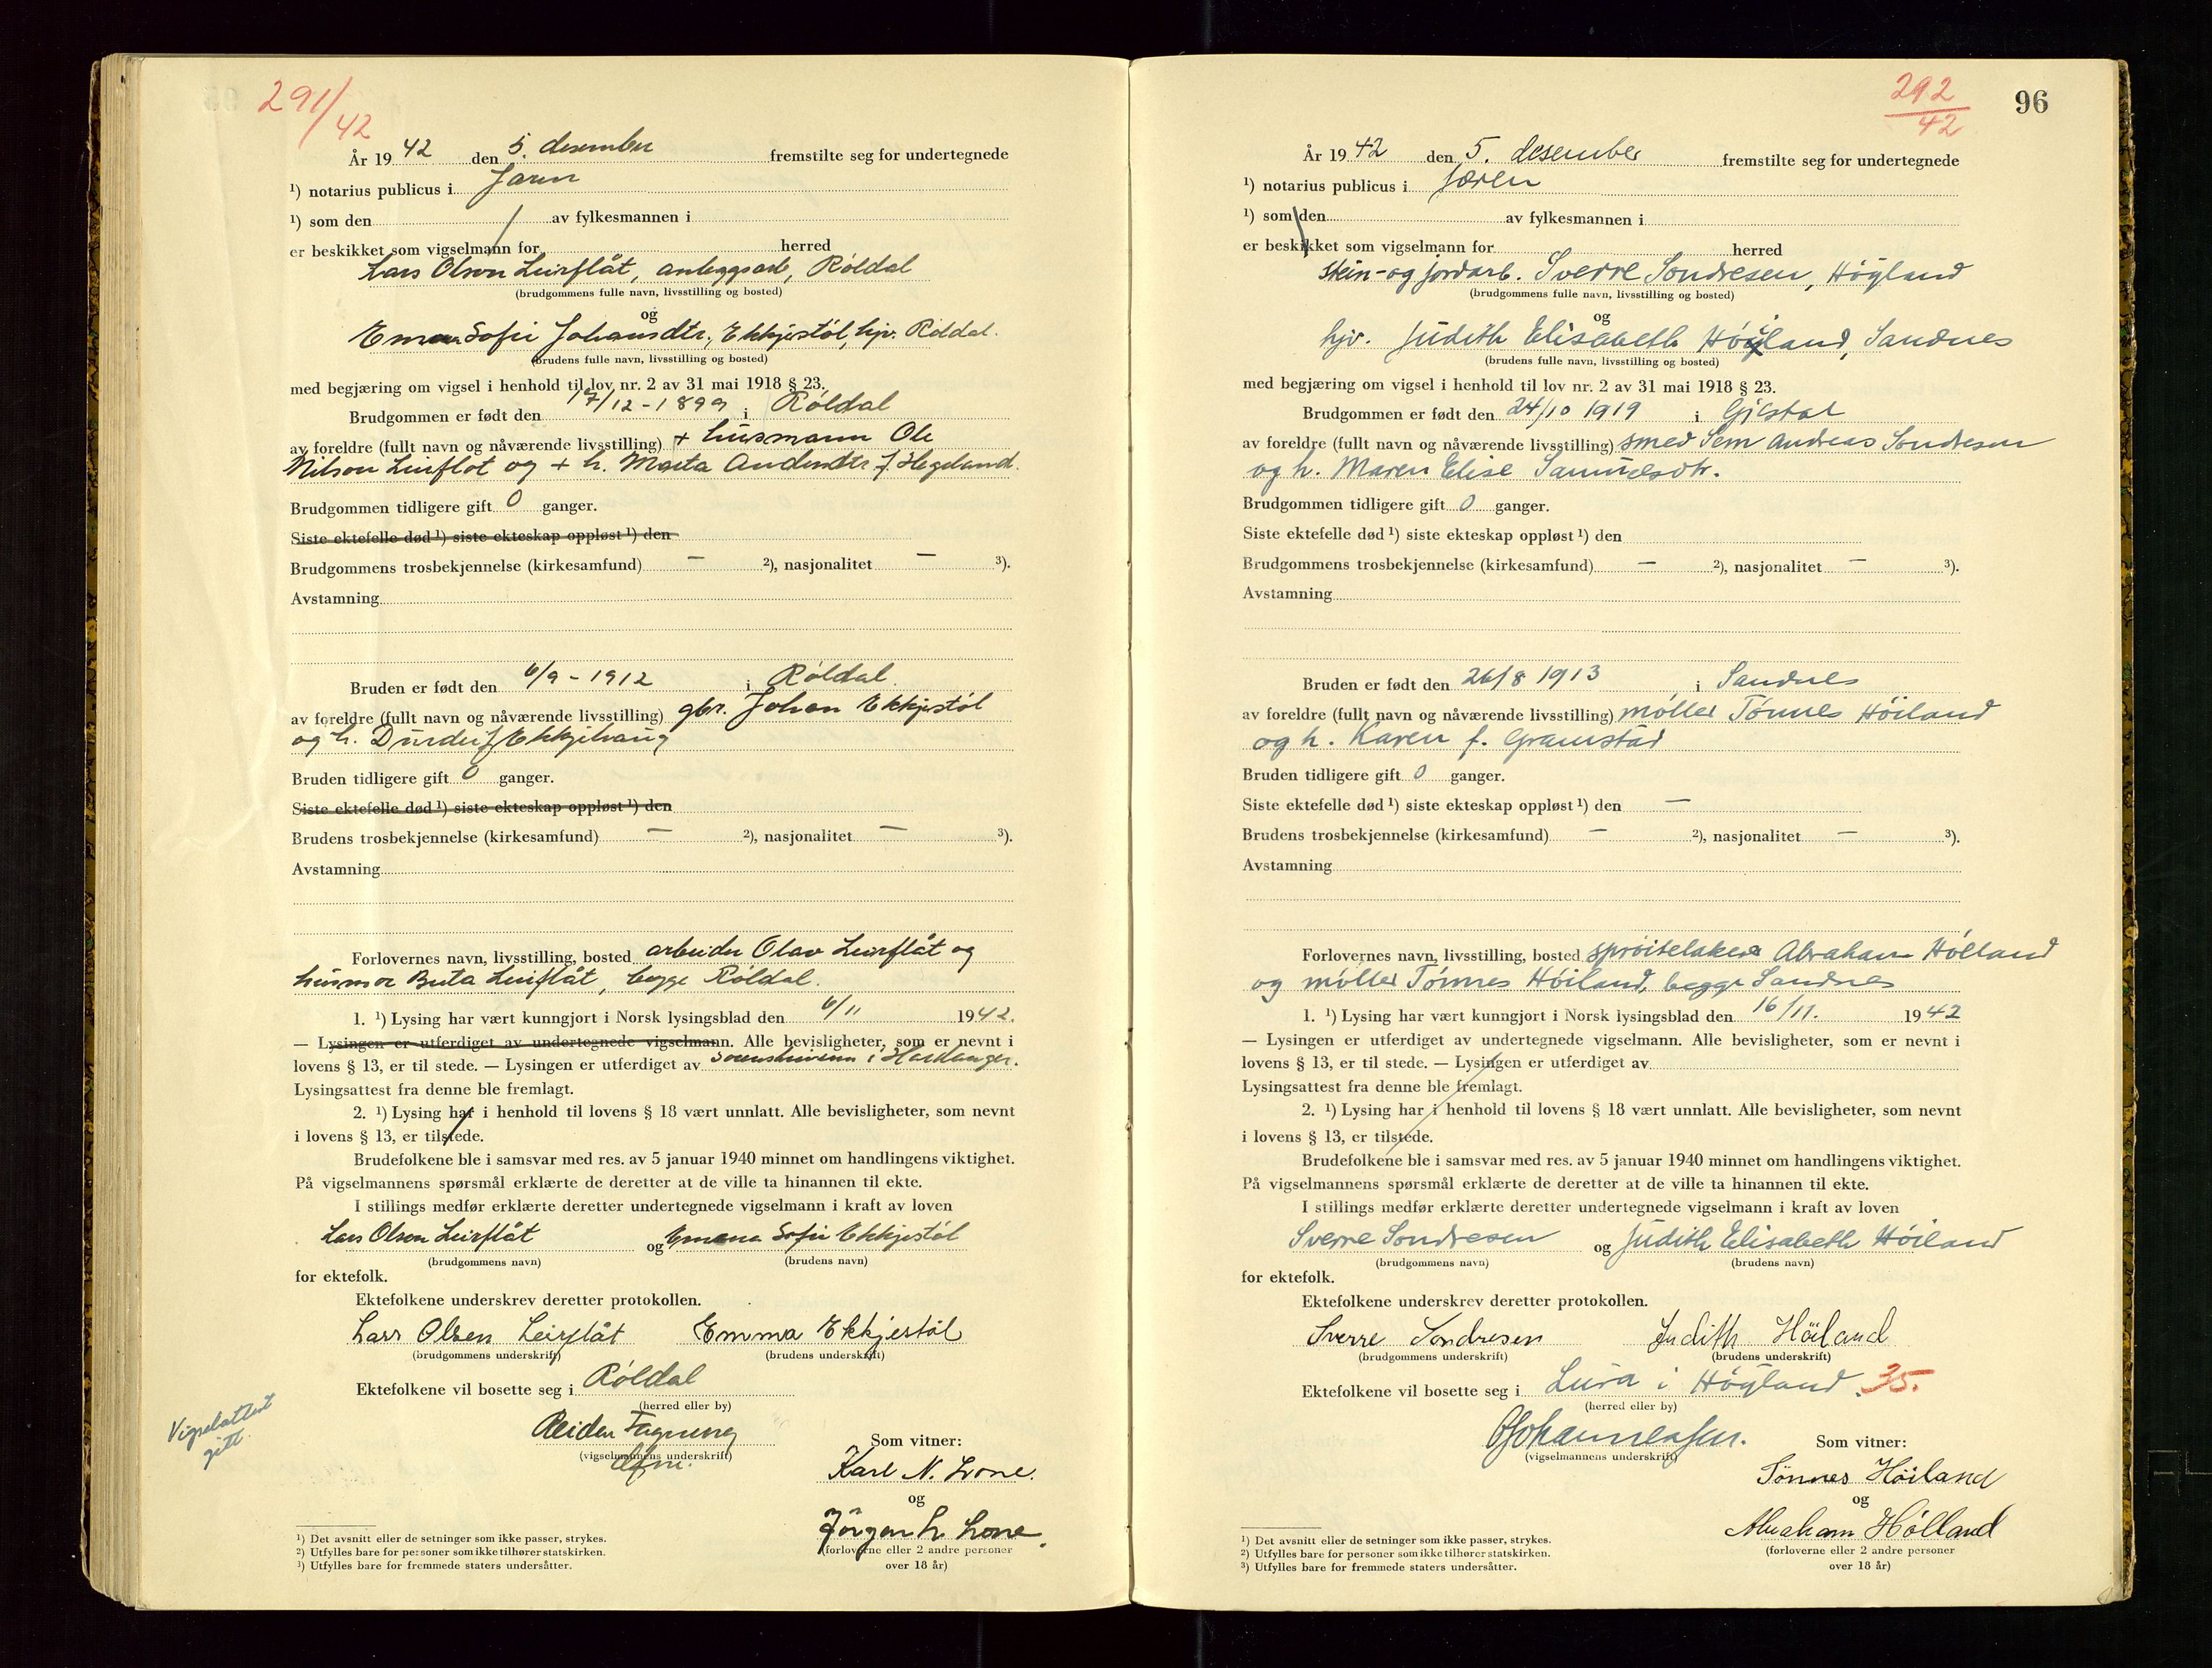 291/42
År 1942 den 5. desember fremstilte seg for undertegnede
¹) notarius publicus i Jæren
¹) som den av fylkesmannen i
er beskikket som vigselmann for herred
Lars Olson Leirflåt, anleggsarb, Röldal
(brudgommens fulle navn, livsstilling og bosted)
og
Emma Sofie Johansdtr. Ekkjestöl, hjv. Röldal.
(brudens fulle navn, livsstilling og bosted)
med begjæring om vigsel i henhold til lov nr. 2 av 31 mai 1918 § 23.
Brudgommen er født den 17/12-1899 i Röldal
av foreldre (fullt navn og nåværende livsstilling) + husmann Ole
Nilson Leirflot og + h. Marta f. Hegeland.
Brudgommen tidligere gift 0 ganger.
Siste ektefelle død ¹) siste ekteskap oppløst ¹) den
Brudgommens trosbekjennelse (kirkesamfund) — ²), nasjonalitet — ³).
Avstamning
Bruden er født den 6/9-1912 i Röldal.
av foreldre (fullt navn og nåværende livsstilling) gbr. Johan Ekkjestöl
og h. f.
Bruden tidligere gift 0 ganger.
Siste ektefelle død ¹) siste ekteskap oppløst ¹) den
Brudens trosbekjennelse (kirkesamfund) — ²), nasjonalitet — ³).
Avstamning
Forlovernes navn, livsstilling, bosted arbeider Olav Leirflåt og
husmor Leirflåt, begge Röldal.
1. ¹) Lysing har vært kunngjort i Norsk lysingsblad den 6/11 1942.
— Lysingen er utferdiget av undertegnede vigselmann. Alle bevisligheter, som er nevnt i
lovens § 13, er til stede. — Lysingen er utferdiget av sorenskriveren i Hardanger.
Lysingsattest fra denne ble fremlagt.
2. ¹) Lysing har i henhold til lovens § 18 vært unnlatt. Alle bevisligheter, som nevnt
i lovens § 13, er tilstede.
Brudefolkene ble i samsvar med res. av 5 januar 1940 minnet om handlingens viktighet.
På vigselmannens spørsmål erklærte de deretter at de ville ta hinannen til ekte.
I stillings medfør erklærte deretter undertegnede vigselmann i kraft av loven
Lars Olson Leirflåt og Emma Sofie Ekkjestöl
(brudgommens navn) (brudens navn)
for ektefolk.
Ektefolkene underskrev deretter protokollen.
Lars Olsen Leirflåt Emma Ekkjestöl
(brudgommens underskrift) (brudens underskrift)
Ektefolkene vil bosette seg i Röldal
(herred eller by)
Vigselattest
gitt.
Reidar
(vigselmannens underskrift)
Som vitner:
Karl N. Lone.
og
Jörgen L. Lone.
(forloverne eller 2 andre personer
over 18 år)
¹) Det avsnitt eller de setninger som ikke passer, strykes.
²) Utfylles bare for personer som ikke tilhører statskirken.
³) Utfylles bare for fremmede staters undersåtter.
292
42
96
År 1942 den 5. desember fremstilte seg for undertegnede
¹) notarius publicus i Jæren
¹) som den av fylkesmannen i
er beskikket som vigselmann for herred
stein- og jordarb. Sverre Sondresen, Høyland
(brudgommens fulle navn, livsstilling og bosted)
og
hjv. Judith Elisabeth Höiland, Sandnes
(brudens fulle navn, livsstilling og bosted)
med begjæring om vigsel i henhold til lov nr. 2 av 31 mai 1918 § 23.
Brudgommen er født den 24/10 1919 i Gjestal
av foreldre (fullt navn og nåværende livsstilling) smed Sem Andreas Sondresen
og h. Maren Elise Samuelsdtr.
Brudgommen tidligere gift 0 ganger.
Siste ektefelle død ¹) siste ekteskap oppløst ¹) den
Brudgommens trosbekjennelse (kirkesamfund) — ²), nasjonalitet — ³).
Avstamning
Bruden er født den 26/8 1913 i Sandnes
av foreldre (fullt navn og nåværende livsstilling) møller Tönnes Höiland
og h. Karen f. Gramstad
Bruden tidligere gift 0 ganger.
Siste ektefelle død ¹) siste ekteskap oppløst ¹) den —
Brudens trosbekjennelse (kirkesamfund) — ²), nasjonalitet — ³).
Avstamning
Forlovernes navn, livsstilling, bosted sprøitelakerer Abraham Hölland
og møller Tönnes Höiland, begge Sandnes
1. ¹) Lysing har vært kunngjort i Norsk lysingsblad den 16/11. 1942
— Lysingen er utferdiget av undertegnede vigselmann. Alle bevisligheter, som er nevnt i
lovens § 13, er til stede. — Lysingen er utferdiget av
Lysingsattest fra denne ble fremlagt.
2. ¹) Lysing har i henhold til lovens § 18 vært unnlatt. Alle bevisligheter, som nevnt
i lovens § 13, er tilstede.
Brudefolkene ble i samsvar med res. av 5 januar 1940 minnet om handlingens viktighet.
På vigselmannens spørsmål erklærte de deretter at de ville ta hinannen til ekte.
I stillings medfør erklærte deretter undertegnede vigselmann i kraft av loven
Sverre Sondresen og Judith Elisabeth Höiland
(brudgommens navn) (brudens navn)
for ektefolk.
Ektefolkene underskrev deretter protokollen.
Sverre Sondresen Judith Höiland
(brudgommens underskrift) (brudens underskrift)
Ektefolkene vil bosette seg i Lura i Høyland. 35.
(herred eller by)
OJohannessen.
(vigselmannens underskrift)
Som vitner:
Tönnes Höiland
og
Abraham Hölland
(forloverne eller 2 andre personer
over 18 år)
¹) Det avsnitt eller de setninger som ikke passer, strykes.
²) Utfylles bare for personer som ikke tilhører statskirken.
³) Utfylles bare for fremmede staters undersåtter.